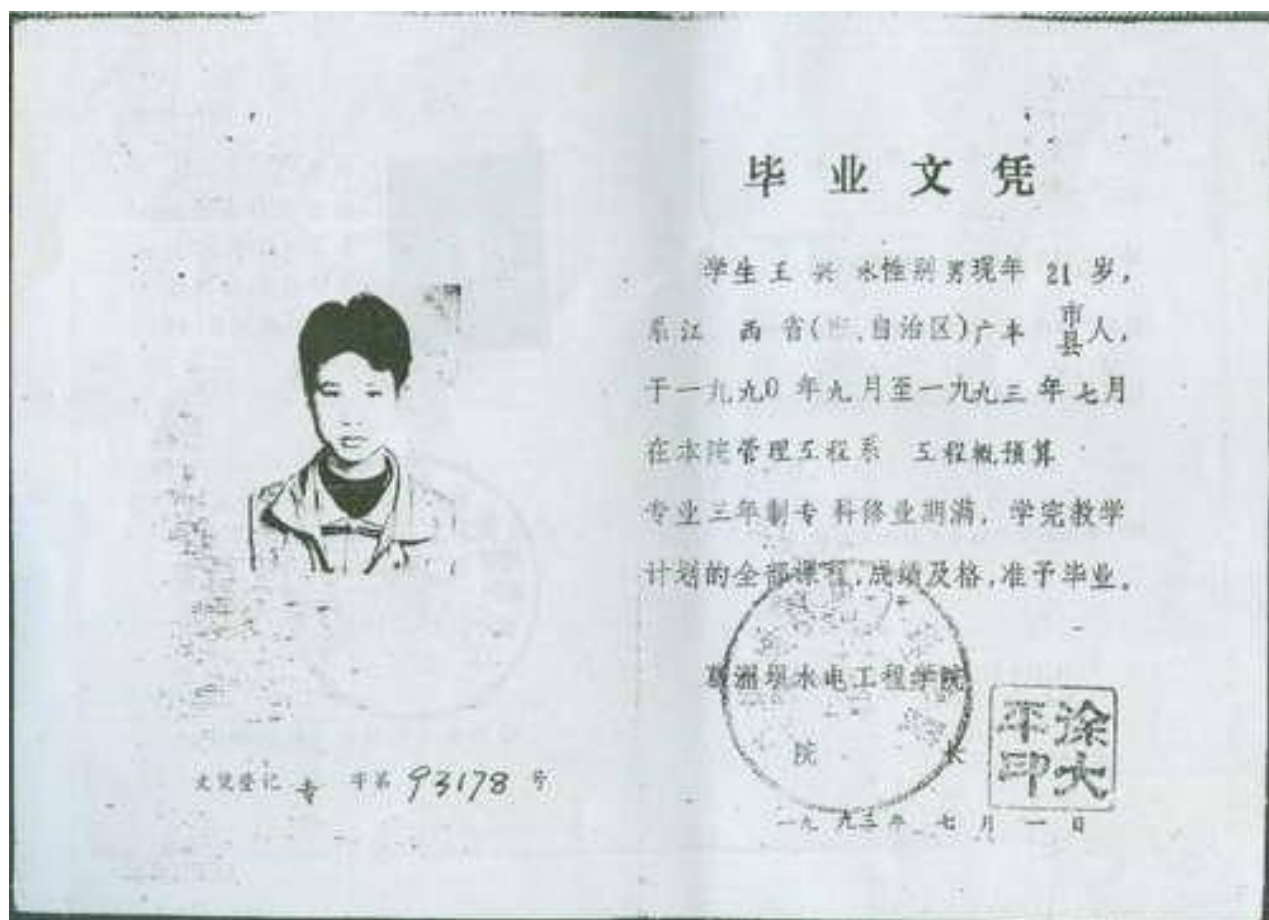 毕业文凭
学生王兴水性别男现年 21 岁,
系江 西省( .自治区)广丰 市县人,
于一九九0 年九月至一九九三年七月
在本院管理工程系 工程概预算
专业三年制专科修业期满, 学完教学
计划的全部课程,成绩及格,准予毕业.
葛洲坝水电工程学院
院 长
涂大平印
一九九三年 七月一日
文凭登记 专 字第 93178 号